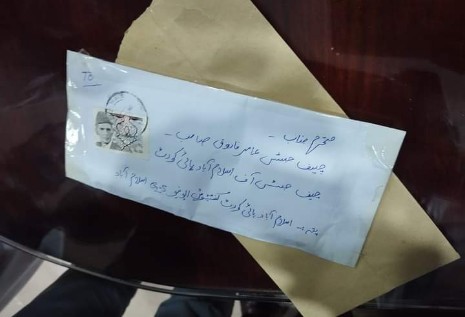 To
محترم جناب -
چیف جسٹس عامر فاروق صاحب -
چیف جسٹس آف اسلام آباد ہائی کورٹ
پتہ :- اسلام آباد ہائی کورٹ کنسٹیٹیوشن ایونیو اسلام آباد